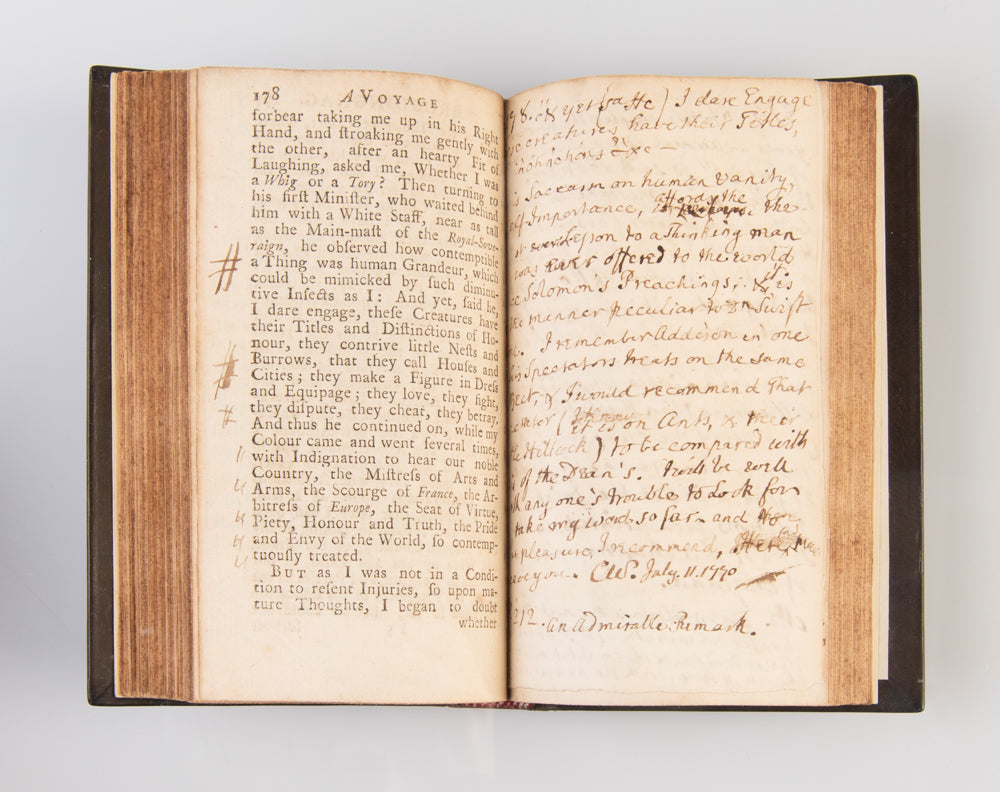 178 A VOYAGE
forbear taking me up in his Right
Hand, and ſtroaking me gently with
the other, after an hearty Fit of
Laughing, asked me, Whether I was
a Whig or a Tory? Then turning to
his firſt Miniſter, who waited behind
him with a White Staff, near as tall
as the Main-maſt of the Royal-Sove-
raign, he obſerved how contemptible
a Thing was human Grandeur, which
could be mimicked by ſuch diminu-
tive Inſects as I: And yet, ſaid he,
I dare engage, theſe Creatures have
their Titles and Diſtinctions of Ho-
nour, they contrive little Neſts and
Burrows, that they call Houſes and
Cities; they make a Figure in Dreſs
and Equipage; they love, they fight,
they diſpute, they cheat, they betray.
And thus he continued on, while my
Colour came and went ſeveral times,
with Indignation to hear our noble
Country, the Miſtreſs of Arts and
Arms, the Scourge of France, the Ar-
bitreſs of Europe, the Seat of Virtue,
Piety, Honour and Truth, the Pride
and Envy of the World, ſo contemp-
tuouſly treated.
BUT as I was not in a Condi-
tion to reſent Injuries, ſo upon ma-
ture Thoughts, I began to doubt
whether
& yet (sa He) I dare Engage
creatures have their Titles,
&c —
Sacrasm on human Vanity,
Importance, affords the
Lesson to a thinking man
was ever offered to the world
Solomon's Preachings; & is
manner peculiar to Dn Swift
I remember Addison in one
Spectators treats on the same
& I would recommend that
(it is on Ants, & their
Hillock) to be compared with
of the Dean's. twill be well
any one's trouble to Look for
take my word so far and
pleasure, I recommend,
you. July. 11. 1770
212. an Admirable Remark.